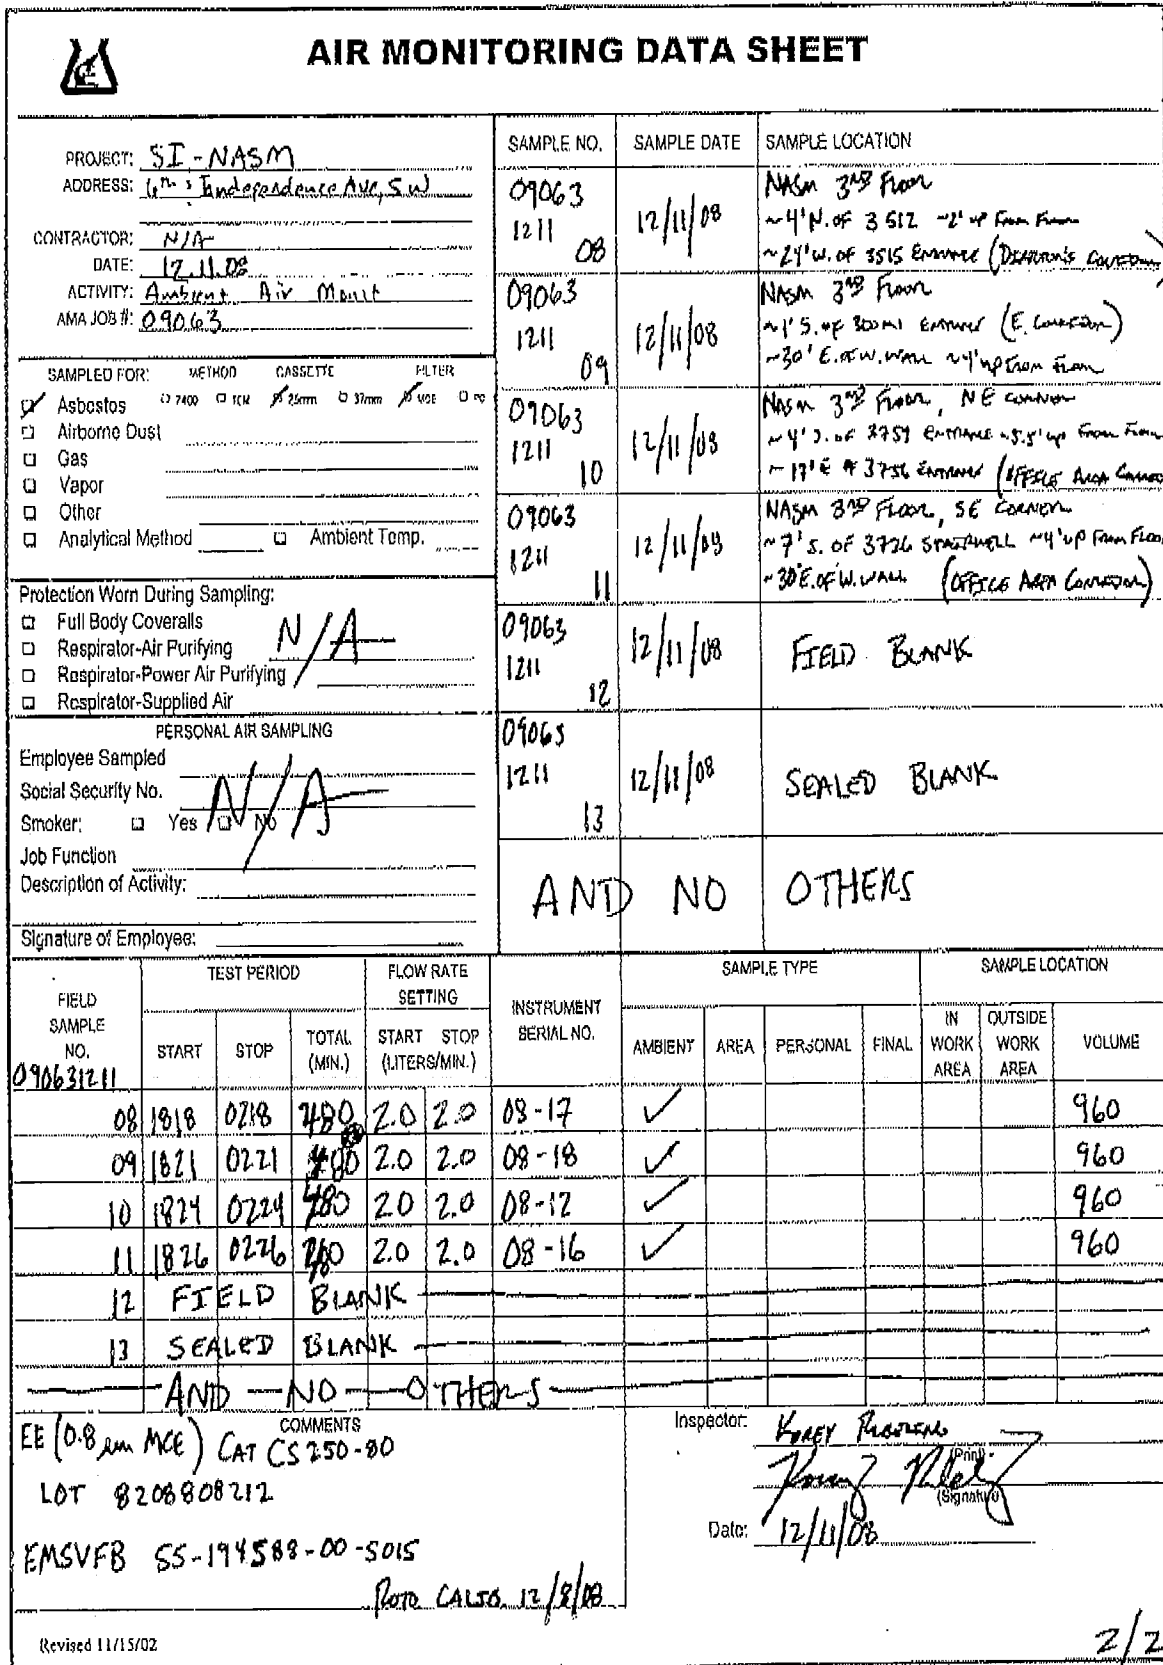 AIR MONITORING DATA SHEET
PROJECT: SI-NASM
ADDRESS: Independence Ave, SW
CONTRACTOR: N/A
DATE: 12.11.08
ACTIVITY: Ambient Air Monit
AMA JOB #: 09063
SAMPLED FOR: METHOD CASSETTE FILTER
Asbestos 7400 TEM 25mm 37mm MCE PC
Airborne Dust
Gas
Vapor
Other
Analytical Method Ambient Temp.
Protection Worn During Sampling:
Full Body Coveralls
Respirator-Air Purifying
Respirator-Power Air Purifying
Respirator-Supplied Air
N/A
PERSONAL AIR SAMPLING
Employee Sampled
Social Security No.
Smoker: Yes No
N/A
Job Function
Description of Activity:
Signature of Employee:
SAMPLE NO. SAMPLE DATE SAMPLE LOCATION
09063 1211 08 12/11/08 NASM 3RD FLOOR
~4' N. OF 3512 ~2' UP FROM FLOOR
~24' W. OF 3515 ENTRANCE
09063 1211 09 12/11/08 NASM 3RD FLOOR
~1' S. OF ENTRANCE (E. CORRIDOR)
~30' E. OF W. WALL ~4' UP FROM FLOOR
09063 1211 10 12/11/08 NASM 3RD FLOOR, NE CORNER
~4' S. OF 3759 ENTRANCE ~5.5' UP FROM FLOOR
~17' E OF 3756 ENTRANCE (OFFICE AREA
09063 1211 11 12/11/08 NASM 3RD FLOOR, SE CORNER
~7' S. OF 3726 STAIRWELL ~4' UP FROM FLOO
~30' E. OF W. WALL (OFFICE AREA CORRIDOR)
09063 1211 12 12/11/08 FIELD BLANK
09063 1211 13 12/11/08 SEALED BLANK
AND NO OTHERS
FIELD SAMPLE NO. TEST PERIOD FLOW RATE SETTING INSTRUMENT SERIAL NO. SAMPLE TYPE SAMPLE LOCATION
START STOP TOTAL (MIN.) START STOP (LITERS/MIN.) AMBIENT AREA PERSONAL FINAL IN WORK AREA OUTSIDE WORK AREA VOLUME
090631211
08 1818 0218 480 2.0 2.0 08-17 ✓ 960
09 1821 0221 480 2.0 2.0 08-18 ✓ 960
10 1824 0224 480 2.0 2.0 08-12 ✓ 960
11 1826 0226 480 2.0 2.0 08-16 ✓ 960
12 FIELD BLANK
13 SEALED BLANK
AND NO OTHERS
COMMENTS
EE (0.8 µm MCE) CAT CS 250-80
LOT 8208808212
EMSVFB SS-194588-00-S015
ROTO CALIB. 12/8/08
Inspector: KOREY
(Print)
(Signature)
Date: 12/11/08
Revised 11/15/02
2/2